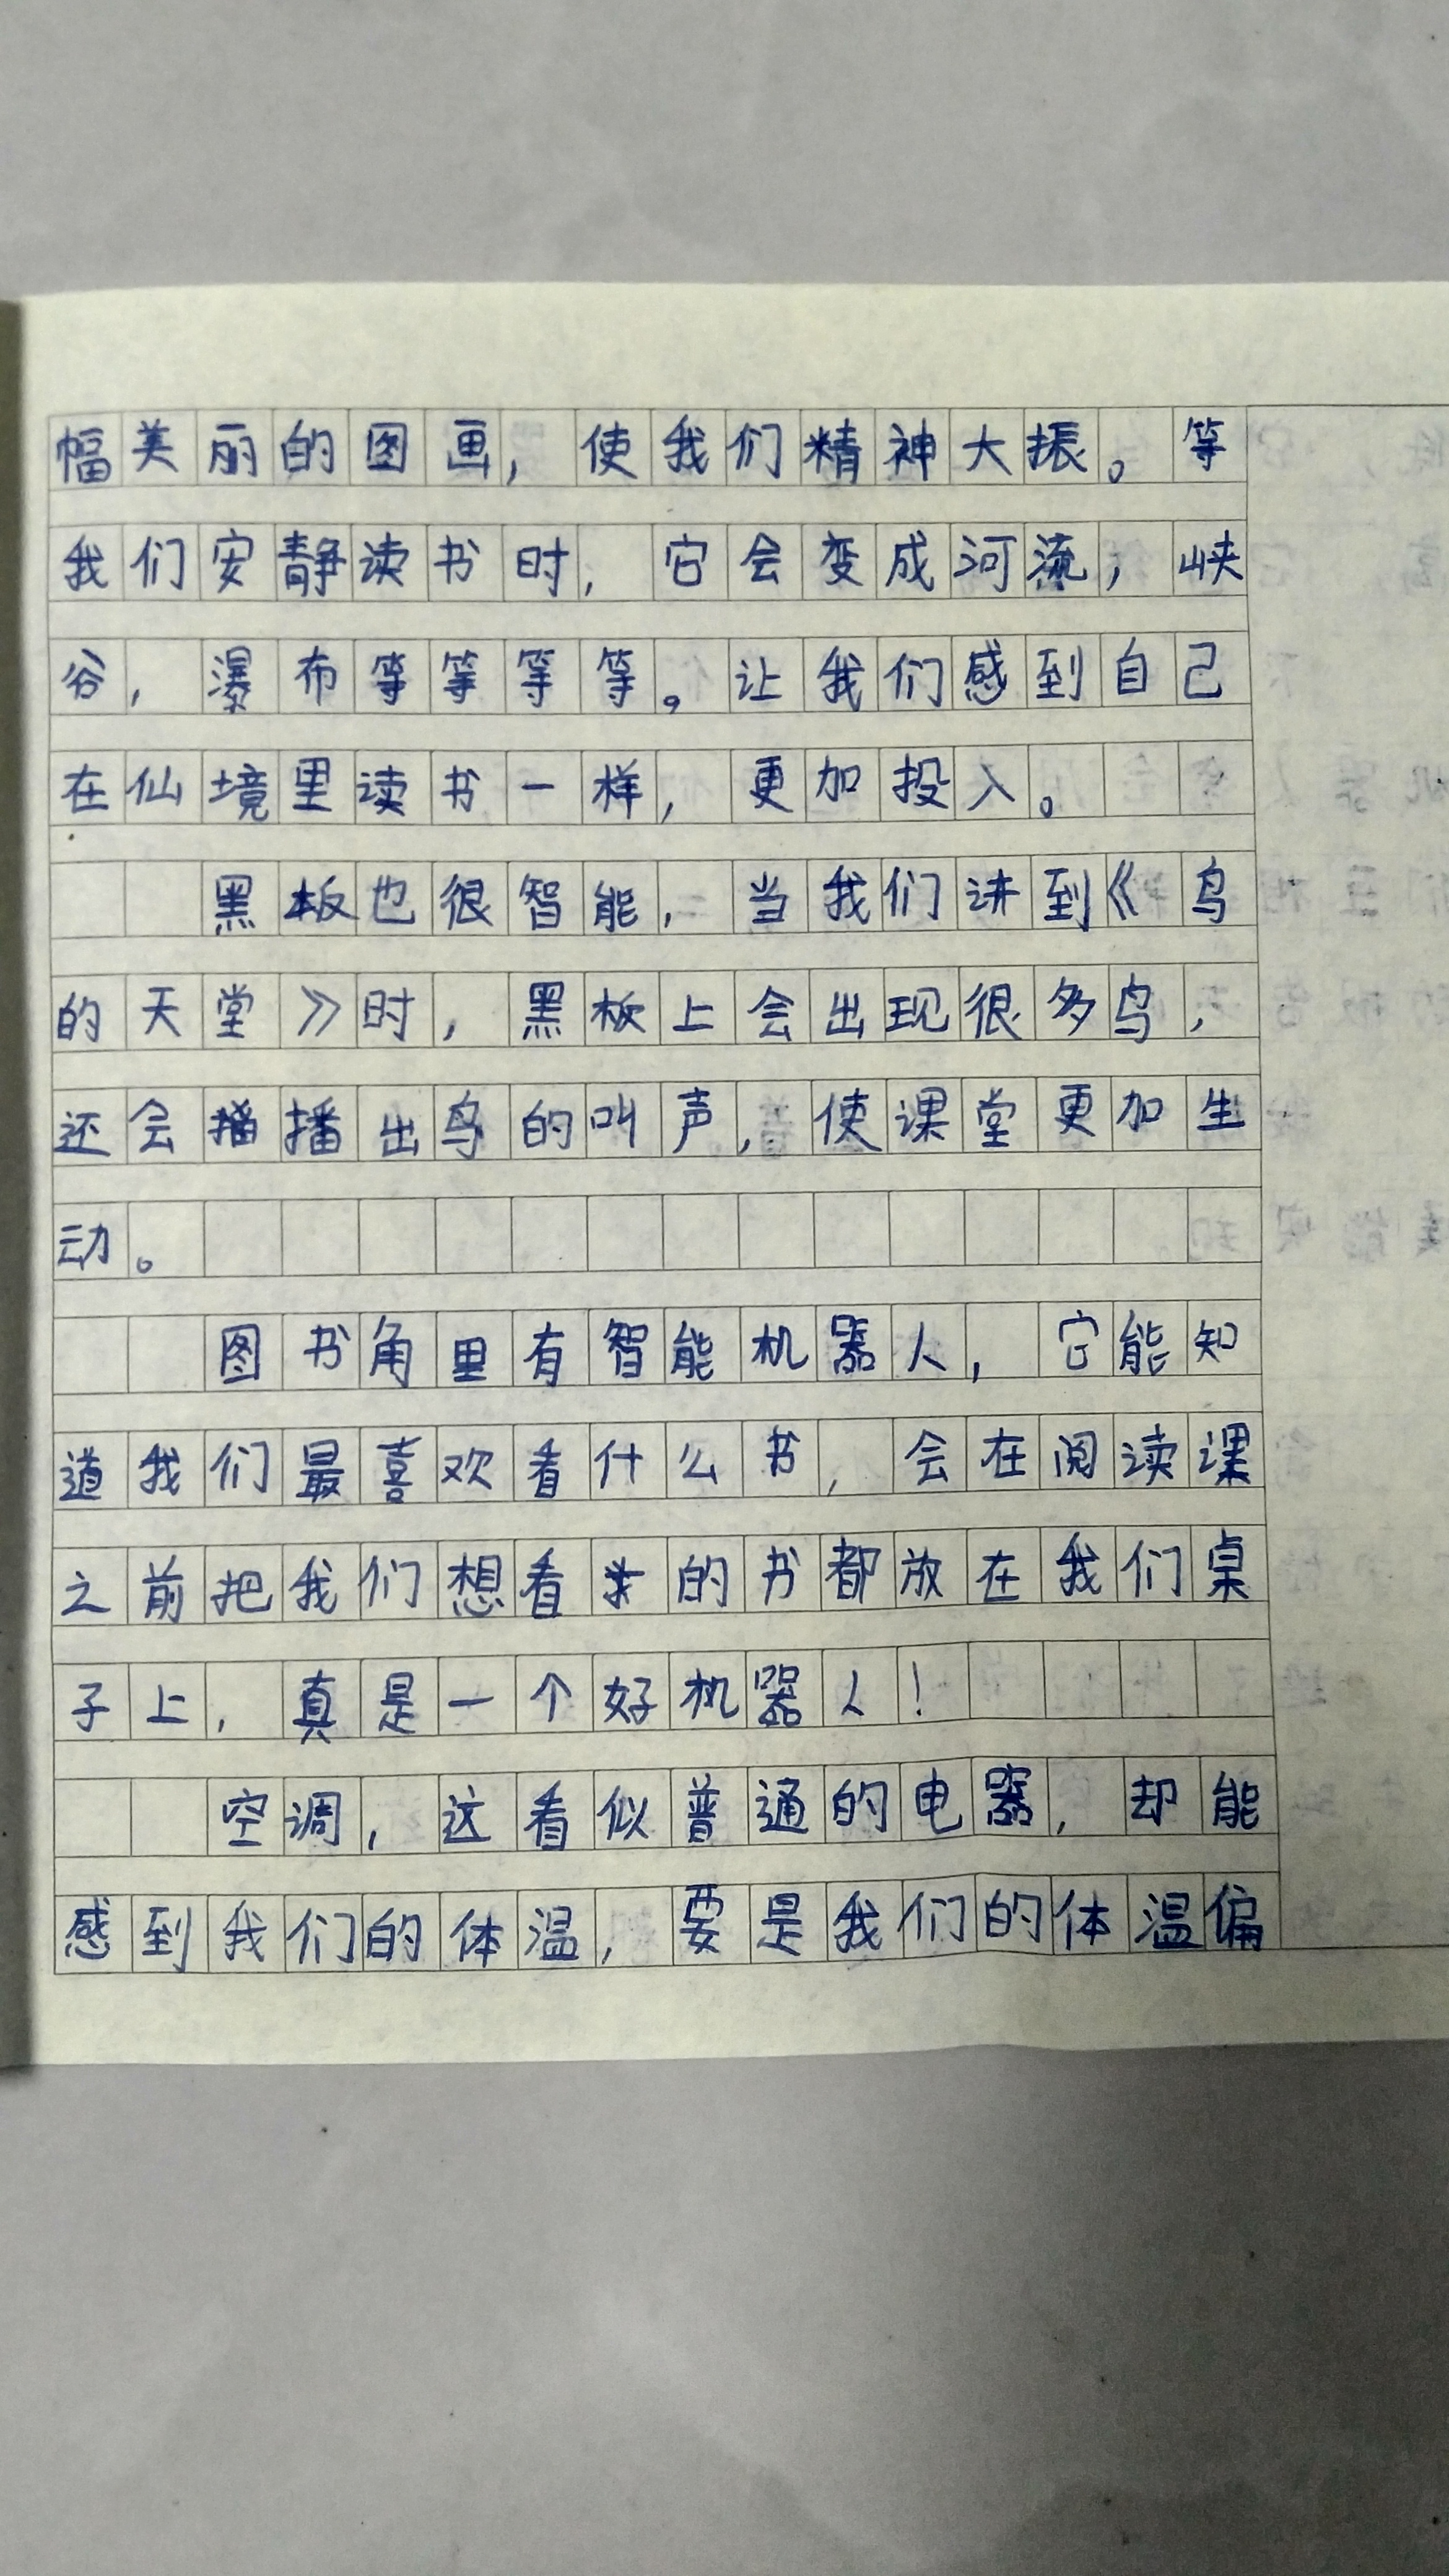 幅美丽的图画，使我们精神大振。等
我们安静读书时，它会变成河流，峡
谷，瀑布等等等等。让我们感到自己
在仙境里读书一样，更加投入。
黑板也很智能，当我们讲到《鸟
的天堂》时，黑板上会出现很多鸟，
还会播播出鸟的叫声，使课堂更加生
动。
图书角里有智能机器人，它能知
道我们最喜欢看什么书，会在阅读课
之前把我们想看的书都放在我们桌
子上，真是一个好机器人！
空调，这看似普通的电器，却能
感到我们的体温，要是我们的体温偏